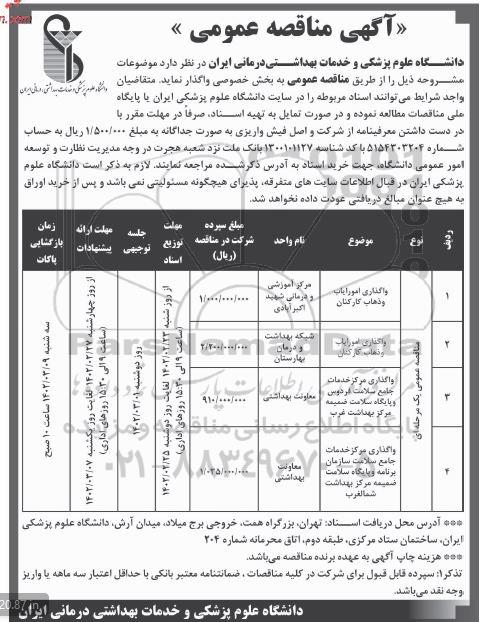 «آگهی مناقصه عمومی»
دانشگاه علوم پزشکی و خدمات بهداشتی درمانی ایران
دانشگاه علوم پزشکی و خدمات بهداشتی‌درمانی ایران در نظر دارد موضوعات
مشروحه ذیل را از طریق مناقصه عمومی به بخش خصوصی واگذار نماید. متقاضیان
واجد شرایط می‌توانند اسناد مربوطه را در سایت دانشگاه علوم پزشکی ایران یا پایگاه
ملی مناقصات مطالعه نموده و در صورت تمایل به تهیه اسناد، صرفاً در مهلت مقرر با
در دست داشتن معرفینامه از شرکت و اصل فیش واریزی به صورت جداگانه به مبلغ ۱/۵۰۰/۰۰۰ ریال به حساب
شماره ۵۱۵۴۳۰۳۲۰۴ با کد شناسه ۱۳۰۰۱۰۱۱۲۷ بانک ملت نزد شعبه هجرت در وجه مدیریت نظارت و توسعه
امور عمومی دانشگاه، جهت خرید اسناد به آدرس ذکرشده مراجعه نمایند. لازم به ذکر است دانشگاه علوم
پزشکی ایران در قبال اطلاعات سایت های متفرقه، پذیرای هیچگونه مسئولیتی نمی باشد و پس از خرید اوراق
به هیچ عنوان مبالغ دریافتی عودت داده نخواهد شد.
ردیف نوع موضوع نام واحد مبلغ سپرده شرکت در مناقصه (ریال) مهلت توزیع اسناد جلسه توجیهی مهلت ارائه پیشنهادات زمان بازگشایی پاکات
۱ واگذاری امورایاب وذهاب کارکنان مرکز آموزشی و درمانی شهید اکبرآبادی ۱/۰۰۰/۰۰۰/۰۰۰
۲ واگذاری امورایاب وذهاب کارکنان شبکه بهداشت و درمان بهارستان ۲/۲۰۰/۰۰۰/۰۰۰
۳ واگذاری مرکزخدمات جامع سلامت فردوس وپایگاه سلامت ضمیمه مرکز بهداشت غرب معاونت بهداشتی ۹۱۰/۰۰۰/۰۰۰
۴ واگذاری مرکزخدمات جامع سلامت سازمان برنامه وپایگاه سلامت ضمیمه مرکز بهداشت شمالغرب معاونت بهداشتی ۱/۰۳۵/۰۰۰/۰۰۰
مناقصه عمومی یک مرحله ای
از روز شنبه ۱۴۰۲/۰۲/۲۳ لغایت روز دوشنبه ۱۴۰۲/۰۲/۲۵
(ساعت ۹ الی ۱۵:۳۰ روزهای اداری)
روز دوشنبه ۱۴۰۲/۰۳/۰۱
از روز چهارشنبه ۱۴۰۲/۰۲/۲۷ لغایت روز یکشنبه ۱۴۰۲/۰۳/۰۷
(ساعت ۹ الی ۱۵:۳۰ روزهای اداری)
سه شنبه ۱۴۰۲/۰۳/۰۹ ساعت ۱۰ صبح
*** آدرس محل دریافت اسناد: تهران، بزرگراه همت، خروجی برج میلاد، میدان آرش، دانشگاه علوم پزشکی
ایران، ساختمان ستاد مرکزی، طبقه دوم، اتاق محرمانه شماره ۲۰۴
*** هزینه چاپ آگهی به عهده برنده مناقصه می‌باشد.
تذکر۱: سپرده قابل قبول برای شرکت در کلیه مناقصات ، ضمانتنامه معتبر بانکی با حداقل اعتبار سه ماهه یا واریز
وجه نقد می‌باشد.
دانشگاه علوم پزشکی و خدمات بهداشتی درمانی ایران